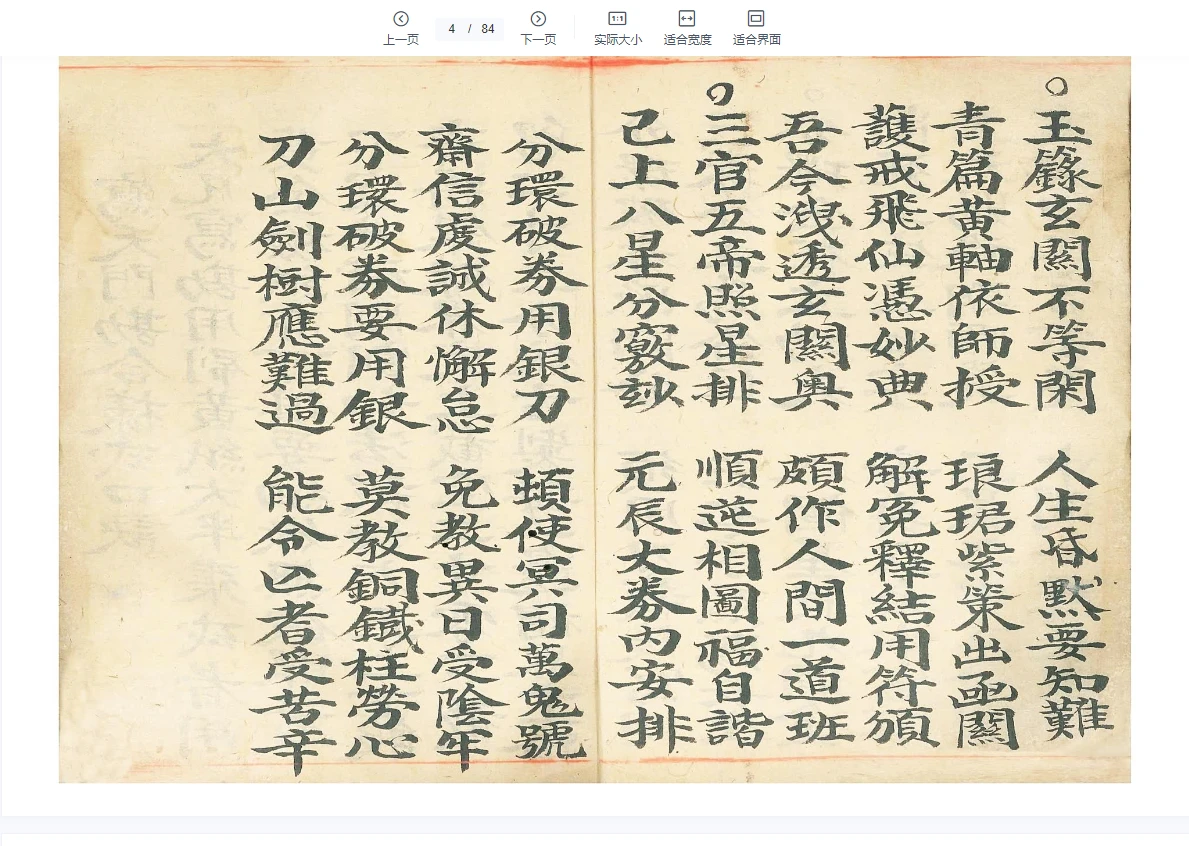 上一页 4 / 84 下一页 实际大小 适合宽度 适合界面
玉籙玄關不等閑 人生昏默要知難
青篇黄軸依師授 琅珺紫策出函關
護戒飛仙憑妙典 解冤釋結用符頒
吾今洩透玄關奧 頗作人間一道班
三官五帝照星排 順逆相圖福自諧
已上八星分竅妙 元辰大券內安排
分環破券用銀刀 頓使冥司萬鬼號
齋信虔誠休懈怠 免教異日受陰牢
分環破券要用銀 莫教銅鐡柱勞心
刀山劍樹應難過 能令亡者受苦辛